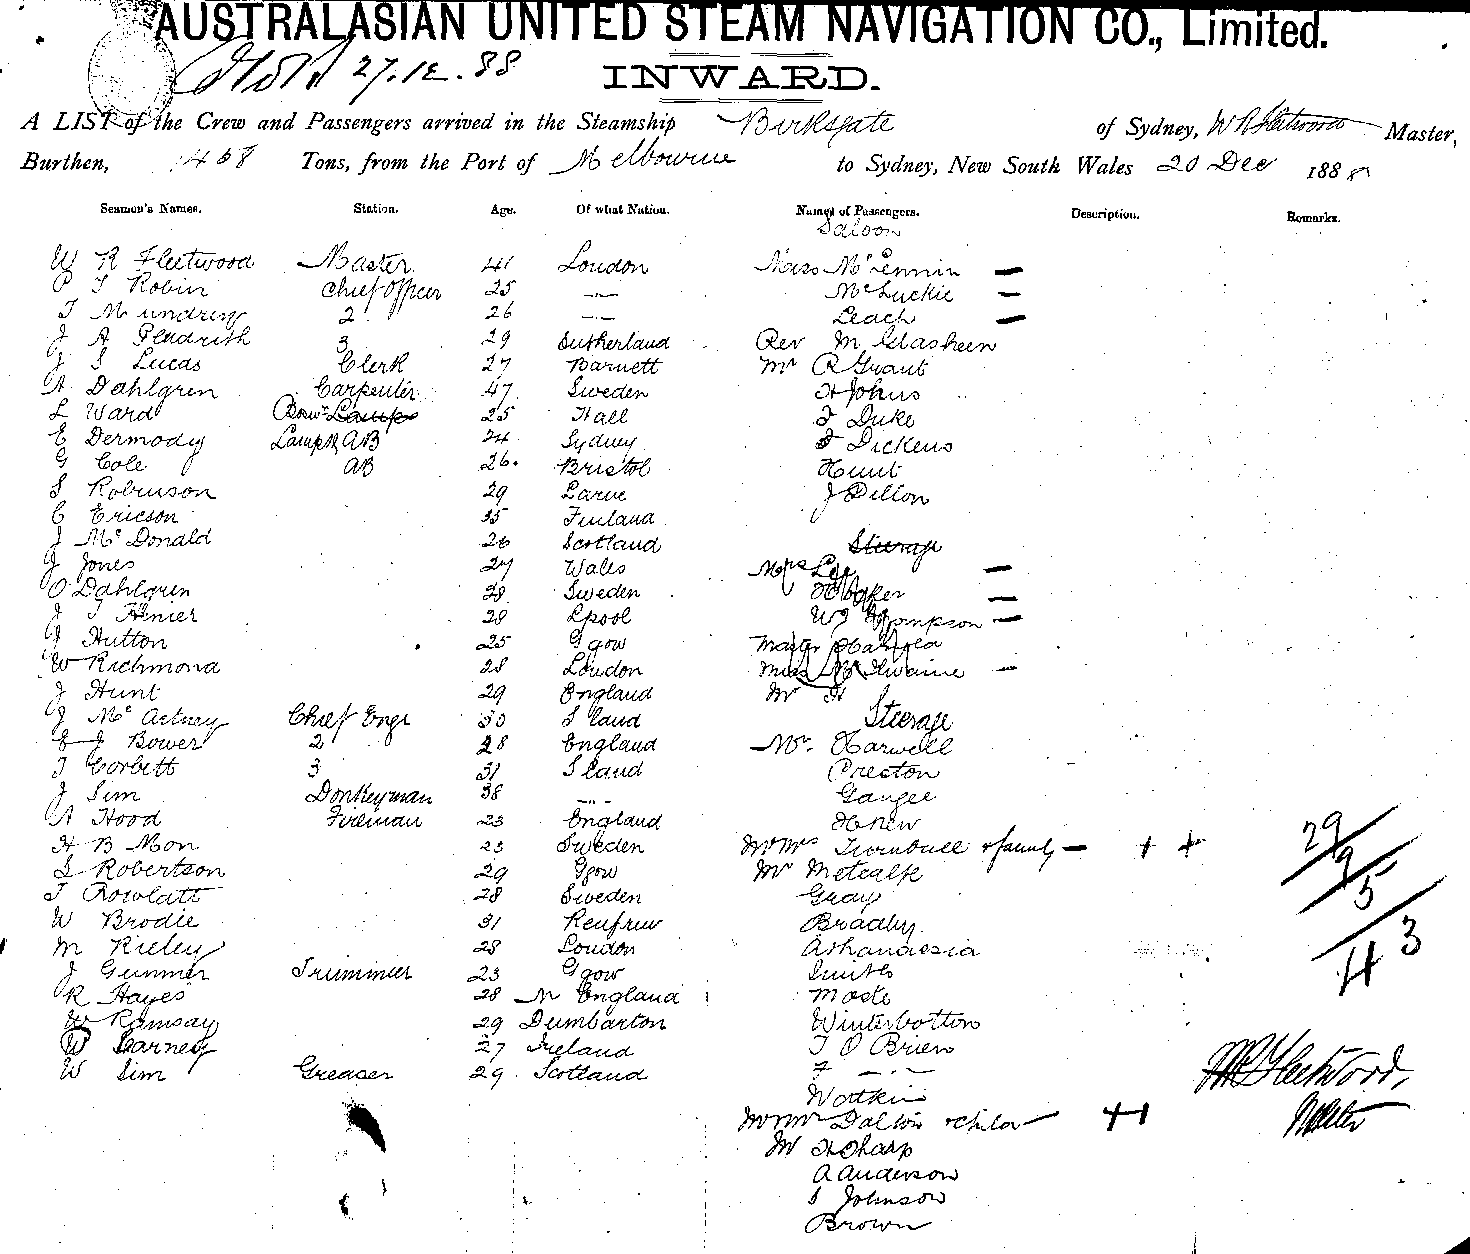 AUSTRALASIAN UNITED STEAM NAVIGATION CO., Limited.
27.12.88
INWARD.
A LIST of the Crew and Passengers arrived in the Steamship Birksgate of Sydney, W R Fleetwood Master,
Burthen, 1468 Tons, from the Port of Melbourne to Sydney, New South Wales 20 Dec 1888
Seamen's Names. Station. Age. Of what Nation. Names of Passengers. Description. Remarks.
Saloon
W R Fleetwood Master 41 London Mc Lennin —
P T Robin Chief Officer 25 —..— McLuckie —
T Mundring 2 26 —..— Leach —
J A Pladrith 3 29 Sutherland Rev M Glasheen
J S Lucas Clerk 27 Barnett Mr R Grant
A Dahlgren Carpenter 47 Sweden H Johns
L Ward Bosn Lamps 25 Hall F Duke
E Dermody Lamps AB 24 Sydney Dickens
G Cole AB 26. Bristol Hunt
S Robinson 29 Larne J Dillon
C Ericson 35 Finland
J Mc Donald 26 Scotland Steerage
J Jones 27 Wales Mrs Lee —
O Dahlgren 28 Sweden Baker —
J T Henier 28 Lpool W Thompson —
J Hutton 25 Ggow Master
W Richmond 28 London Miss McIlwaine —
J Hunt 29 England Mr H
J Mc Artney Chief Engr 30 Sland Steerage
E J Bower 2 28 England Mr. Harwell
T Corbett 3 31 Sland Preston
J Sim Donkeyman 38 —..— Gangee
A Hood Fireman 23 England Hnew
H B Mon 23 Sweden Mr Mrs Turnbull & family — + + 29
S Robertson 29 Ggow Mr Metcalfe 9
T Rowlatt 28 Sweden Gray 5
W Brodie 31 Renfrew Bradly
M Rieley 28 London Athanasia 43
J Gunmer Trimmer 23 Ggow Smith
R Hayes 28 N England Moste
W Ramsay 29 Dumbarton Winterbotton
W Carney 27 Ireland T O Brien
W Sim Greaser 29 Scotland F —..— W R Fleetwood,
Watkin Master
Mr Mrs Dalton & child — ++
Mr H Sharp
A Anderson
S Johnson
Brown